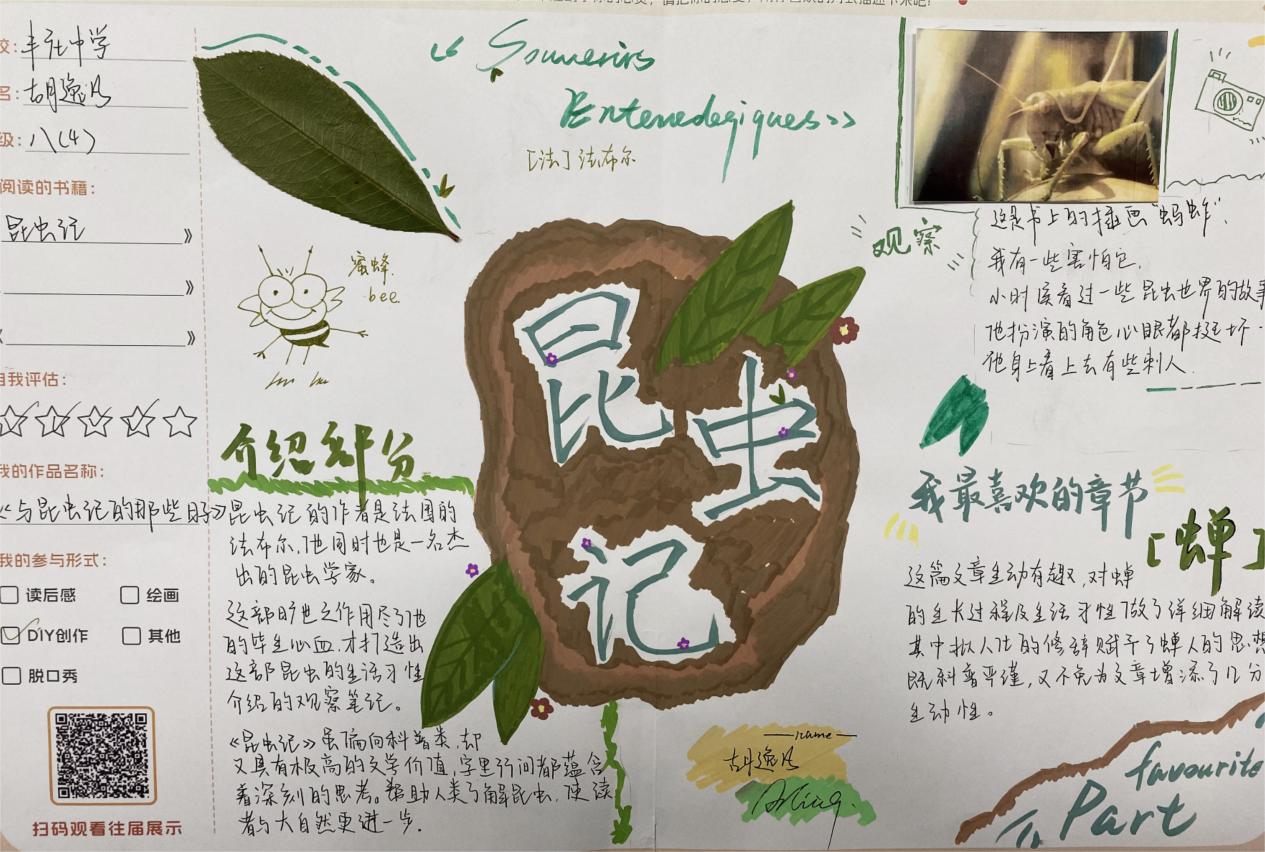 校：丰庄中学
名：胡逸凡
级：八(4)
阅读的书籍：
昆虫记》
》
《 》
自我评估：
我的作品名称：
《与昆虫记的那些日子》
我的参与形式：
读后感 绘画
DIY创作 其他
脱口秀
扫码观看往届展示
《 Souvenirs
Entenedegiques》
[法] 法布尔
蜜蜂.
bee.
介绍部分
昆虫记的作者是法国的
法布尔，他同时也是一名杰
出的昆虫学家。
这部旷世之作用尽了他
的毕生心血，才打造出
这部昆虫的生活习性
介绍的观察笔记。
《昆虫记》虽偏向科普类，却
又具有极高的文学价值，字里行间都蕴含
着深刻的思考。帮助人类了解昆虫，使读
者与大自然更进一步。
昆虫记
name
胡逸凡
观察
这是书上的插画"蚂蚱"，
我有一些害怕它，
小时候看过一些昆虫世界的故事
他扮演的角色心眼都挺坏.
他身上看上去有些刺人.
我最喜欢的章节
[蝉]
这篇文章生动有趣，对蝉
的生长过程及生活习性做了详细解读
其中拟人化的修辞赋予了蝉人的思想
既科普严谨，又不免为文章增添了几分
生动性。
favourite
Part